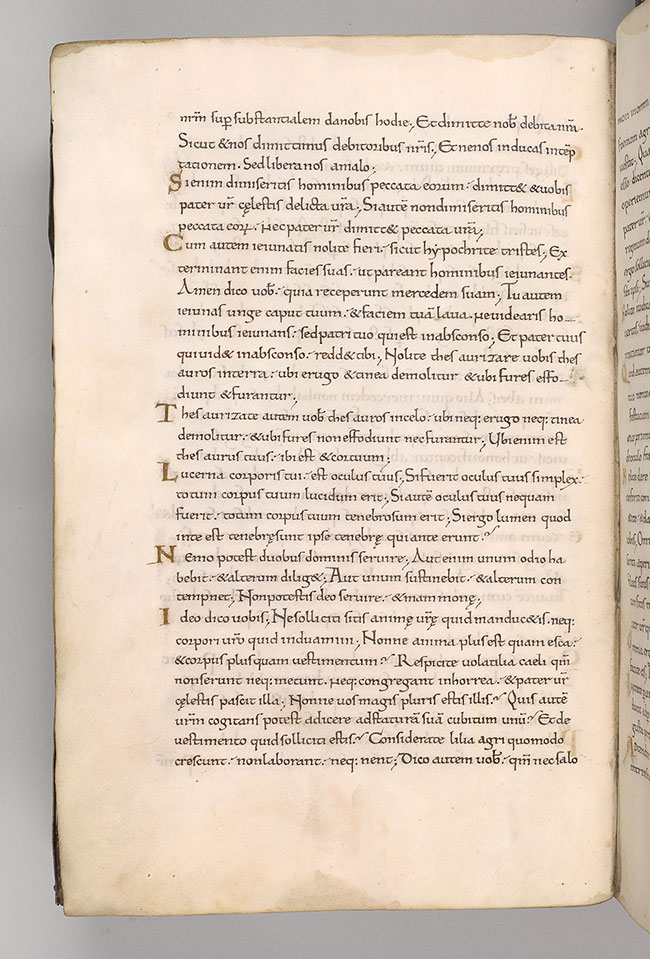 nr̄m sup̱ substantialem danobis hodie; Et dimitte nob̄ debita nr̄a.
Sicut & nos dimittimus debitoribus nr̄is; Et ne nos inducas intēp
tationem. Sed libera nos a malo;
Sienim dimiseritis hominibus peccata eorum. dimitt& & uobis
pater ur̄ cęlestis delicta ur̄a; Siautē nondimiseritis hominibus
peccata eoꝝ. Nec pater ur̄ dimitt& peccata ur̄a;
Cum autem ieiunatis nolite fieri. sicut hypochritę tristes; Ex
terminant enim facies suas. ut pareant hominibus ieiunantes.
Amen dico uob̄. quia receperunt mercedem suam; Tu autem
ieiunas unge caput tuum. & faciem tuā laua. Ne uidearis ho
minibus ieiunans. sed patri tuo qui est inabsconso; Et pater tuus
qui uid& inabsconso. redd& tibi; Nolite thesaurizare uobis thes
auros interra. ubi erugo & tinea demolitur & ubi fures effo
diunt & furantur;
Thesaurizate autem uob̄ thesauros incelo. ubi neq: erugo neq: tinea
demolitur. & ubi fures non effodiunt nec furantur; Ubi enim est
thesaurus tuus. ibi est & cor tuum;
Lucerna corporis tui. est oculus tuus; Si fuerit oculus tuus simplex.
totum corpus tuum lucidum erit; Si autē oculus tuus nequam
fuerit. totum corpus tuum tenebrosum erit; Si ergo lumen quod
inte est tenebrę sunt ipse tenebrę quiante erunt.
Nemo potest duobus dominis seruire; Aut enim unum odio ha
bebit. & alterum dilig&; Aut unum sustinebit. & alterum con
tempnet; Non potestis deo seruire. & mammonę;
Ideo dico uobis; Ne solliciti sitis animę ur̄ę quid manduc&is. neq:
corpori ur̄o quid induamini; Nonne anima plus est quam esca.
& corpus plus quam uestimentum. Respicite uolatilia caeli qm̄
non serunt neq: metunt. Neq: congregant inhorrea. & pater ur̄
cęlestis pascit illa; Nonne uos magis pluris estis illis. Quis autē
ur̄m cogitans potest adicere adstaturā suā cubitum unū. Et de
uestimento quid solliciti estis. Considerate lilia agri quomodo
crescunt. non laborant. neq: nent; Dico autem uob̄. qm̄ nec salo